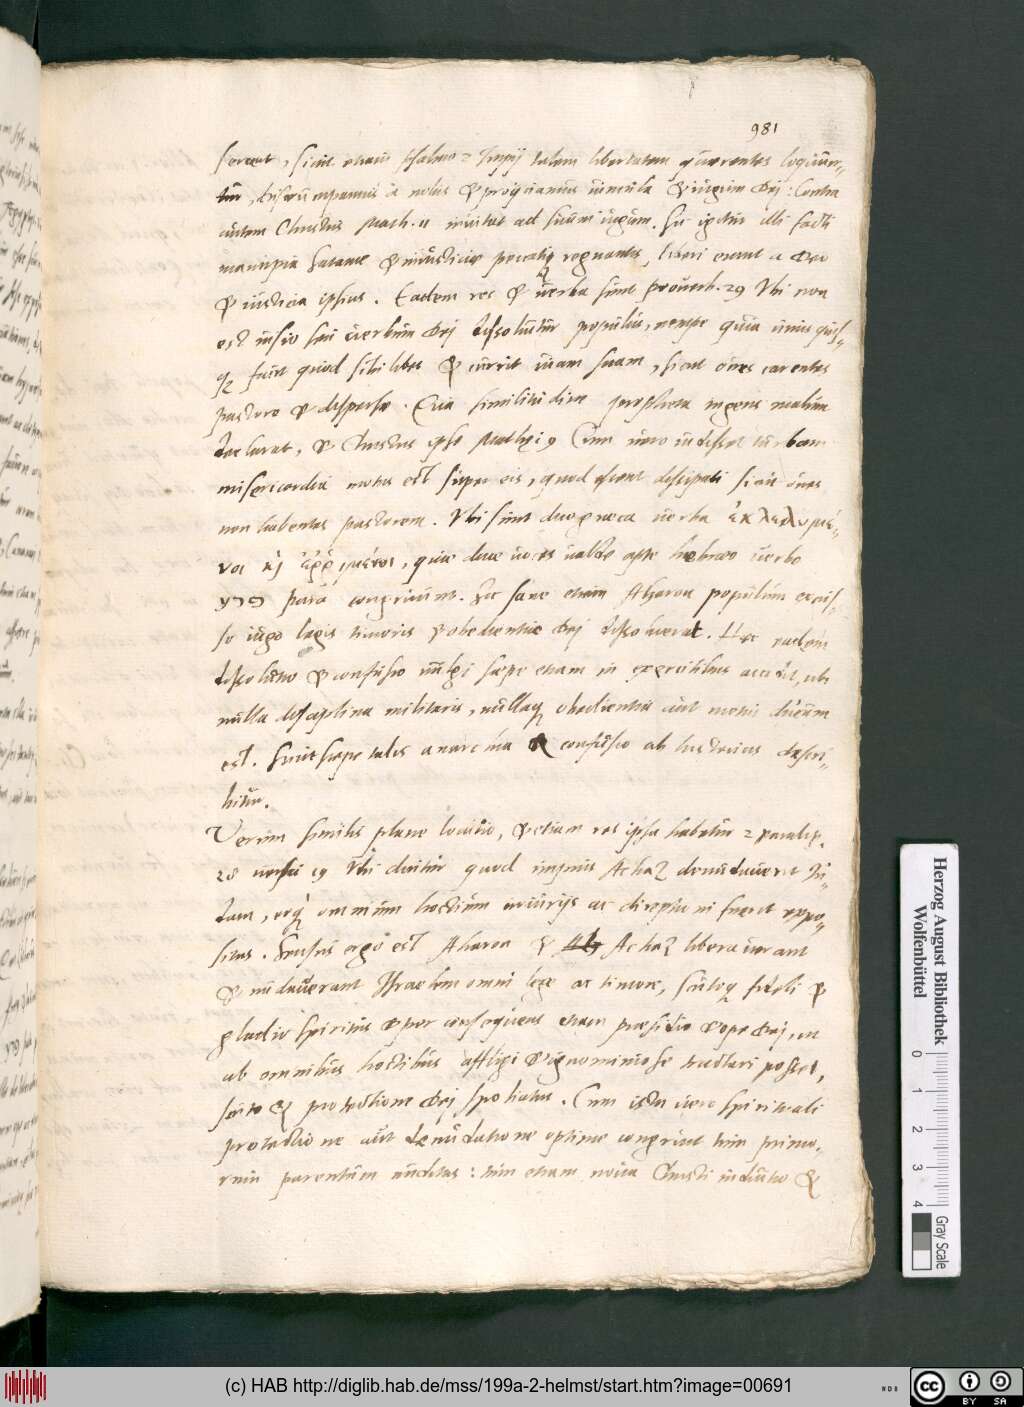 981
sicut etiam Psalmo 2 Impij talem libertatem quaerentes loquun-
tur, a nobis & proijciamus vincula & iugum Dei: Contra
autem Christus Math. 11 invitat ad suum iugum. Sic igitur illi facti
mancipia Satanae & iniusticiae peccatiq regnantis, liberi erant a Deo
& iusticia ipsius. Eadem res & verba sunt proverb. 29 Ubi non
est visio seu verbum Dei dissolvitur populus, nempe quia unusquis-
q facit quod sibi libet & currit viam suam, sicut oves carentes
pastore & dispersae. Ea similitudine propheta ingens malum
declarat, & Christus ipse Mathei 9 Cum vero vidisset turbam
misericordia motus est super eis, quod essent dissipati sicut oves
non habentes pastorem. Ubi sunt duo graeca verba ἐκλελυμέ-
νοι κὶ ἐῤῥιμένοι, quae duae voces valde apte hebraeo verbo
פרע para congruunt. Sic sane etiam Aharon populum excus-
so iugo legis timoris & obedientiae Dei dissolverat. Haec eadem
dissolutio & confusio vulgi saepe etiam in exercitibus accidit, ubi
nulla disciplina militaris, nullaq obedientia aut metus ducum
est. Sicut saepe talis anarchia & confusio ab historicis descri-
bitur.
Verum similis plane locutio, & etiam res ipsa habetur 2 paralip.
28 versu 19 Ubi dicitur quod impius Achaz denudaverit Iu-
dam, eoq omnium hostium iniurijs ac direptioni fuerit expo-
situs. Sensus ergo est Aharon & Achaz liberaverant
& nudaverant Israelem omni lege ac timore, scutoq fidei &
gladio spiritus & per consequens etiam praesidio & ope Dei, ut
ab omnibus hostibus affligi & ignominiose tractari posset,
scuto & protectione Dei spoliatus. Cum ista vero spirituali
protectione aut denudatione optime congruit tum primo-
rum parentum nuditas: tum etiam novia Christi indutio &
(c) HAB http://diglib.hab.de/mss/199a-2-helmst/start.htm?image=00691
Herzog August Bibliothek
Wolfenbüttel
0 1 2 3 4
Gray Scale
cc BY SA